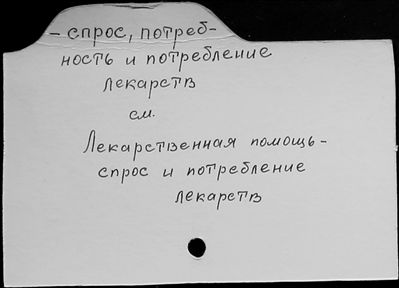 - спрос, потреб-
ность и потребление
лекарств
см.
Лекарственная помощь -
спрос и потребление
лекарств